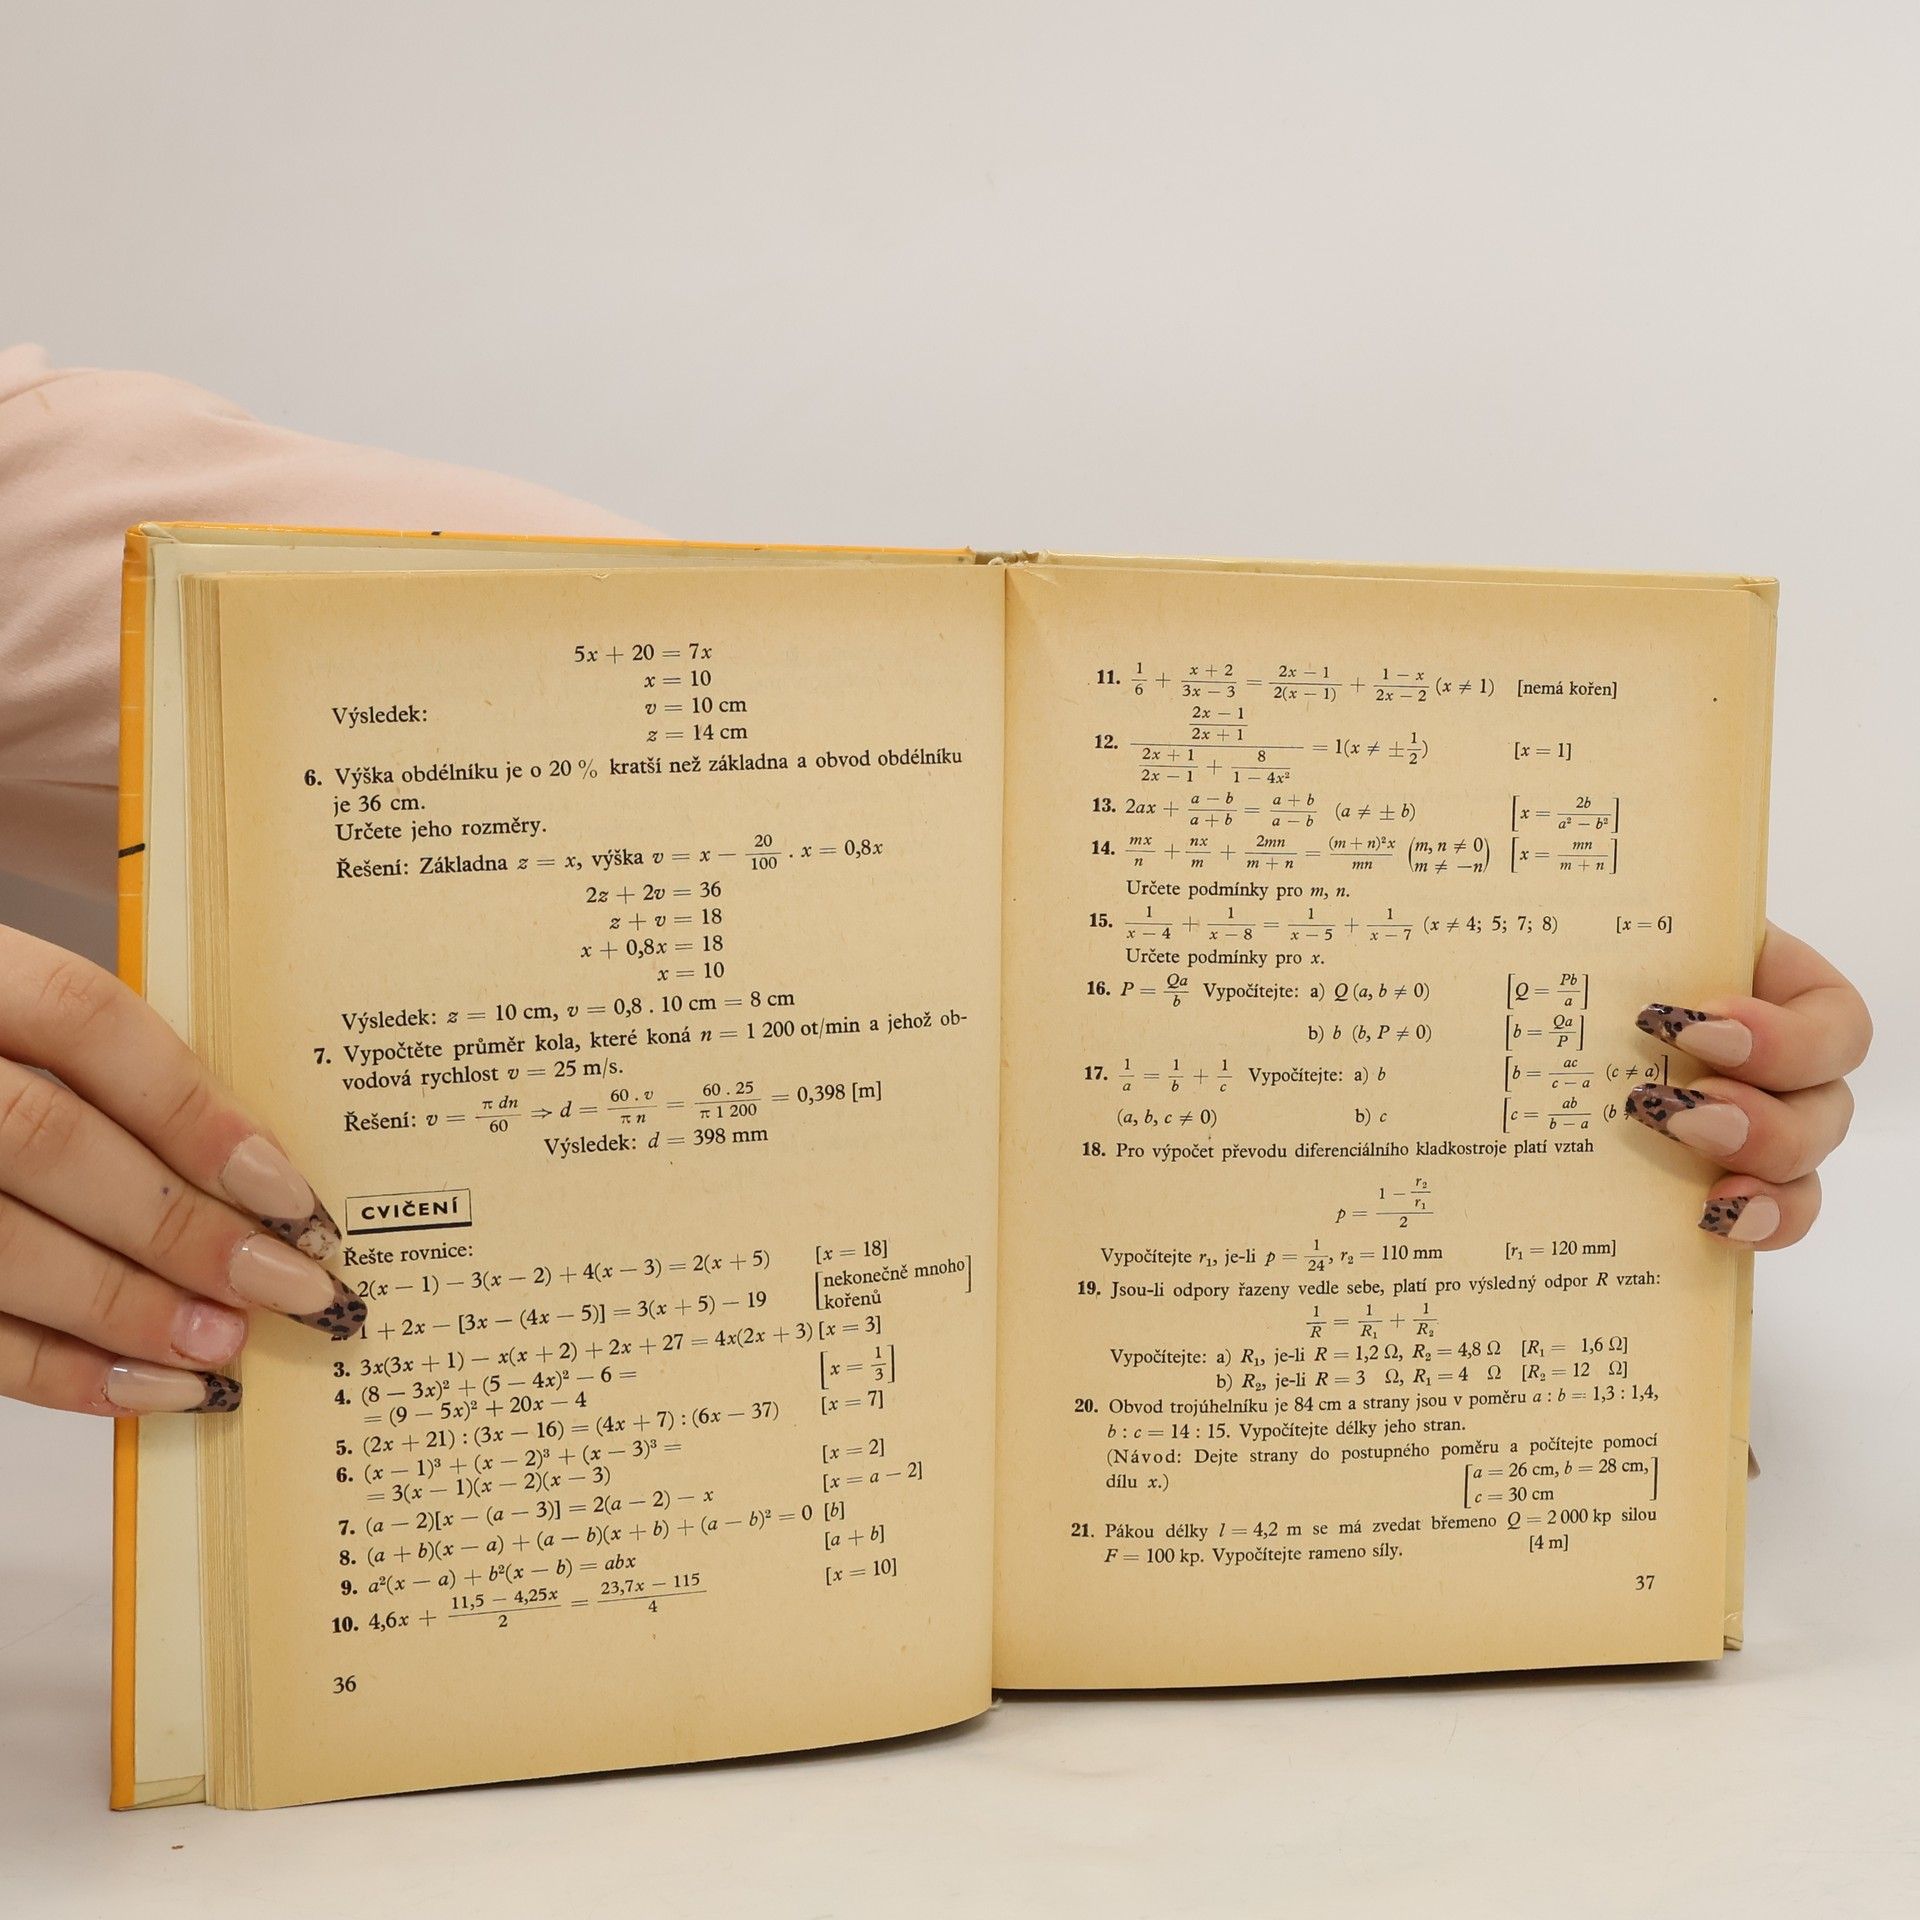 5x + 20 = 7x
x = 10
Výsledek: v = 10 cm
z = 14 cm
6. Výška obdélníku je o 20 % kratší než základna a obvod obdélníku
je 36 cm.
Určete jeho rozměry.
Řešení: Základna z = x, výška v = x − 20/100 . x = 0,8x
2z + 2v = 36
z + v = 18
x + 0,8x = 18
x = 10
Výsledek: z = 10 cm, v = 0,8 . 10 cm = 8 cm
7. Vypočtěte průměr kola, které koná n = 1 200 ot/min a jehož ob-
vodová rychlost v = 25 m/s.
Řešení: v = π dn/60 ⇒ d = 60 . v/π n = 60 . 25/π 1 200 = 0,398 [m]
Výsledek: d = 398 mm
CVIČENÍ
Řešte rovnice:
2(x − 1) − 3(x − 2) + 4(x − 3) = 2(x + 5) [x = 18]
1 + 2x − [3x − (4x − 5)] = 3(x + 5) − 19 [nekonečně mnoho
kořenů]
3. 3x(3x + 1) − x(x + 2) + 2x + 27 = 4x(2x + 3) [x = 3]
4. (8 − 3x)² + (5 − 4x)² − 6 =
= (9 − 5x)² + 20x − 4 [x = 1/3]
5. (2x + 21) : (3x − 16) = (4x + 7) : (6x − 37) [x = 7]
6. (x − 1)³ + (x − 2)³ + (x − 3)³ =
= 3(x − 1)(x − 2)(x − 3) [x = 2]
7. (a − 2)[x − (a − 3)] = 2(a − 2) − x [x = a − 2]
8. (a + b)(x − a) + (a − b)(x + b) + (a − b)² = 0 [b]
9. a²(x − a) + b²(x − b) = abx [a + b]
10. 4,6x + 11,5 − 4,25x/2 = 23,7x − 115/4 [x = 10]
36
11. 1/6 + x + 2/3x − 3 = 2x − 1/2(x − 1) + 1 − x/2x − 2 (x ≠ 1) [nemá kořen]
12. 2x − 1/2x + 1 / 2x + 1/2x − 1 + 8/1 − 4x² = 1(x ≠ ±1/2) [x = 1]
13. 2ax + a − b/a + b = a + b/a − b (a ≠ ± b) [x = 2b/a² − b²]
14. mx/n + nx/m + 2mn/m + n = (m + n)²x/mn (m, n ≠ 0 m ≠ −n) [x = mn/m + n]
Určete podmínky pro m, n.
15. 1/x − 4 + 1/x − 8 = 1/x − 5 + 1/x − 7 (x ≠ 4; 5; 7; 8) [x = 6]
Určete podmínky pro x.
16. P = Qa/b Vypočítejte: a) Q (a, b ≠ 0) [Q = Pb/a]
b) b (b, P ≠ 0) [b = Qa/P]
17. 1/a = 1/b + 1/c Vypočítejte: a) b [b = ac/c − a (c ≠ a)]
(a, b, c ≠ 0) b) c [c = ab/b − a (b
18. Pro výpočet převodu diferenciálního kladkostroje platí vztah
p = 1 − r₂/r₁ / 2
Vypočítejte r₁, je-li p = 1/24, r₂ = 110 mm [r₁ = 120 mm]
19. Jsou-li odpory řazeny vedle sebe, platí pro výsledný odpor R vztah:
1/R = 1/R₁ + 1/R₂
Vypočítejte: a) R₁, je-li R = 1,2 Ω, R₂ = 4,8 Ω [R₁ = 1,6 Ω]
b) R₂, je-li R = 3 Ω, R₁ = 4 Ω [R₂ = 12 Ω]
20. Obvod trojúhelníku je 84 cm a strany jsou v poměru a : b = 1,3 : 1,4,
b : c = 14 : 15. Vypočítejte délky jeho stran.
(Návod: Dejte strany do postupného poměru a počítejte pomocí
dílu x.) [a = 26 cm, b = 28 cm,
c = 30 cm]
21. Pákou délky l = 4,2 m se má zvedat břemeno Q = 2 000 kp silou
F = 100 kp. Vypočítejte rameno síly. [4 m]
37